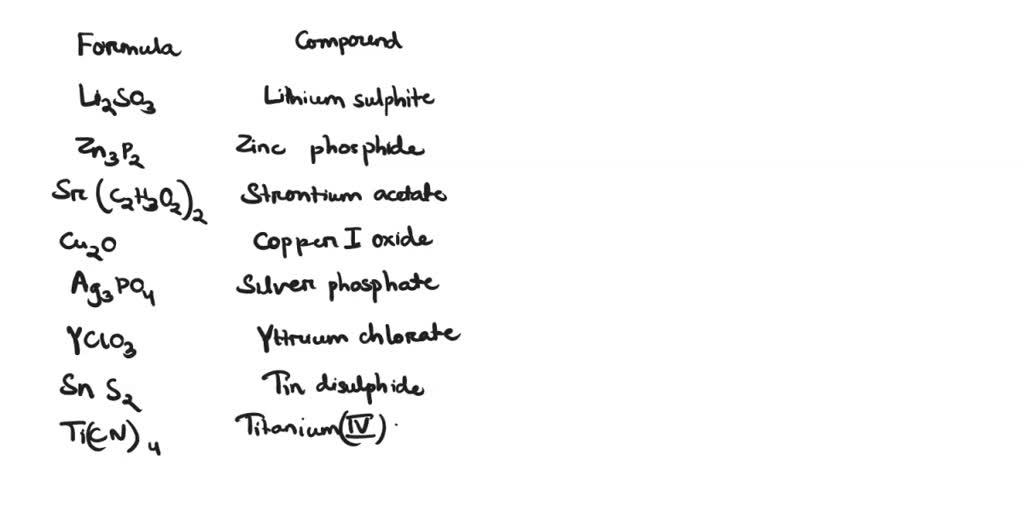 Formula Compound
Li2SO3 Lithium sulphite
Zn3P2 Zinc phosphide
Sr(C2H3O2)2 Strontium acetate
Cu2O Copper I oxide
Ag3PO4 Silver phosphate
YClO3 Yttrium chlorate
SnS2 Tin disulphide
Ti(CN)4 Titanium(IV)